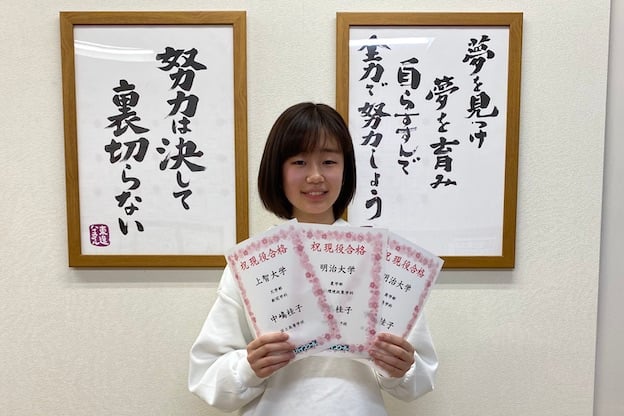 努力は決して
裏切らない
東進
夢を見つけ
夢を育み
自らすすんで
全力で努力しよう
祝現役合格
上智大学
文学部
新聞学科
中嶋桂子
祝現役合格
明治大学
農学部
桂子
祝現役合格
明治大学
桂子